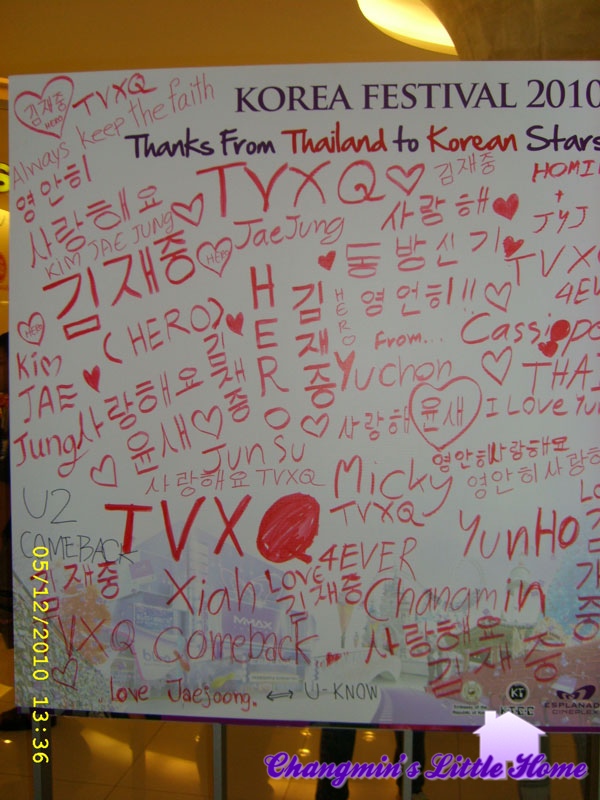 KOREA FESTIVAL 2010
Thanks From Thailand to Korean Stars
김재중
HERO
TVXQ
Always keep the faith
영안히
사랑해요
KIM JAE JUNG
TVXQ
김재중
HOMIN
+
JYJ
JaeJung
사랑해
김재중
HERO
동방신기
TVXQ
4EVER
HERO
김재중
HERO
영언히!!
HERO
(HERO)
From...
Cassiope
Kim
JAE
Jung
사랑해요
김재중
Yuchon
THAI
윤새
사랑해
윤새
I LOVE Yun
Junsu
사랑해요 TVXQ
영안히사랑해요
영안히사랑하
Micky
TVXQ
4EVER
U2
COMEBACK
TVXQ
YunHo
재중
Xiah
LOVE
김재중
Changmin
TVXQ Comeback
사랑해요
김재중
love Jaejoong.
U-KNOW
MMAX
KTCC
ESPLANADE
CINEPLEX
05/12/2010 13:36
Changmin's Little Home